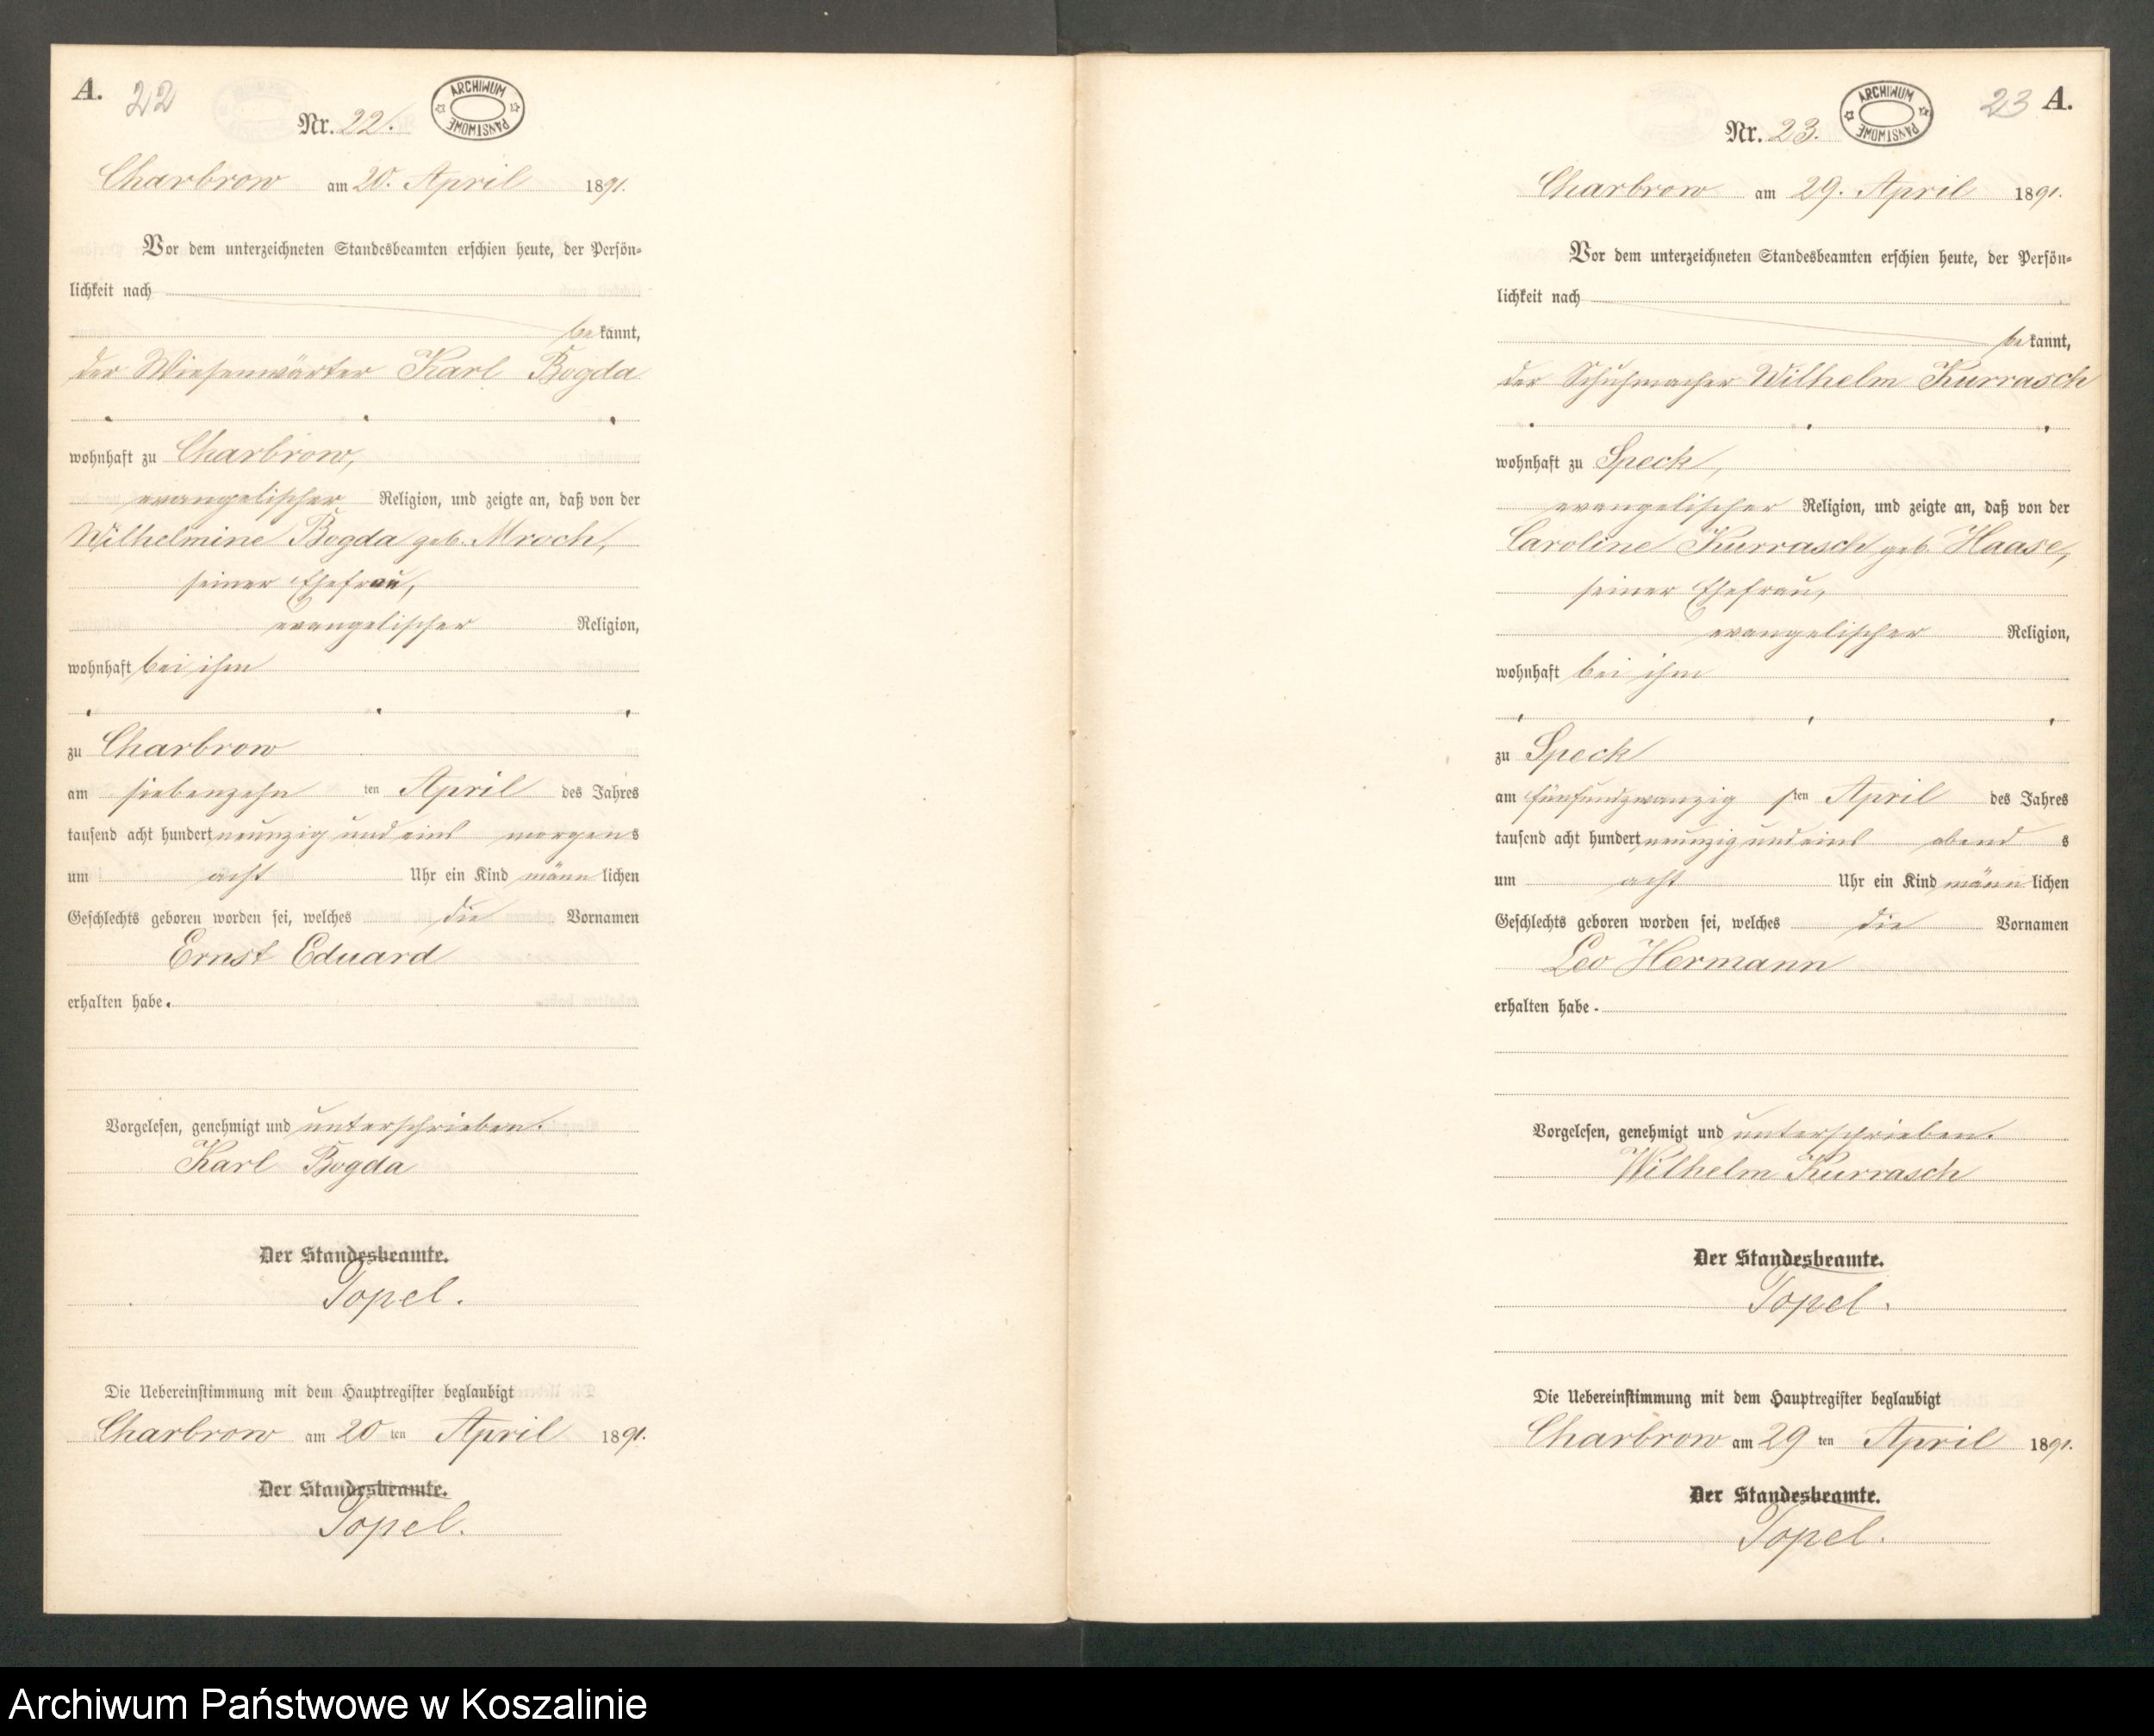 A. 22
ARCHIWUM PAŃSTWOWE
Nr. 22.
Charbrow am 20. April 1891.
Vor dem unterzeichneten Standesbeamten erschien heute, der Persön-
lichkeit nach
bekannt,
der Wiesenwärter Karl Bogda
wohnhaft zu Charbrow,
evangelischer Religion, und zeigte an, daß von der
Wilhelmine Bogda geb. Mroch,
seiner Ehefrau,
evangelischer Religion,
wohnhaft bei ihm
zu Charbrow
am siebenzehn ten April des Jahres
tausend acht hundert neunzig und eins morgens
um acht Uhr ein Kind männlichen
Geschlechts geboren worden sei, welches die Vornamen
Ernst Eduard
erhalten habe.
Vorgelesen, genehmigt und unterschrieben.
Karl Bogda
Der Standesbeamte.
Topel.
Die Uebereinstimmung mit dem Hauptregister beglaubigt
Charbrow am 20 ten April 1891.
Der Standesbeamte.
Topel.
23 A.
ARCHIWUM PAŃSTWOWE
Nr. 23.
Charbrow am 29. April 1891.
Vor dem unterzeichneten Standesbeamten erschien heute, der Persön-
lichkeit nach
bekannt,
der Schuhmacher Wilhelm Kurrasch
wohnhaft zu Speck,
evangelischer Religion, und zeigte an, daß von der
Caroline Kurrasch geb. Haase,
seiner Ehefrau,
evangelischer Religion,
wohnhaft bei ihm
zu Speck
am fünfundzwanzig sten April des Jahres
tausend acht hundert neunzig und eins abends
um acht Uhr ein Kind männlichen
Geschlechts geboren worden sei, welches die Vornamen
Leo Hermann
erhalten habe.
Vorgelesen, genehmigt und unterschrieben.
Wilhelm Kurrasch
Der Standesbeamte.
Topel.
Die Uebereinstimmung mit dem Hauptregister beglaubigt
Charbrow am 29 ten April 1891.
Der Standesbeamte.
Topel.
Archiwum Państwowe w Koszalinie